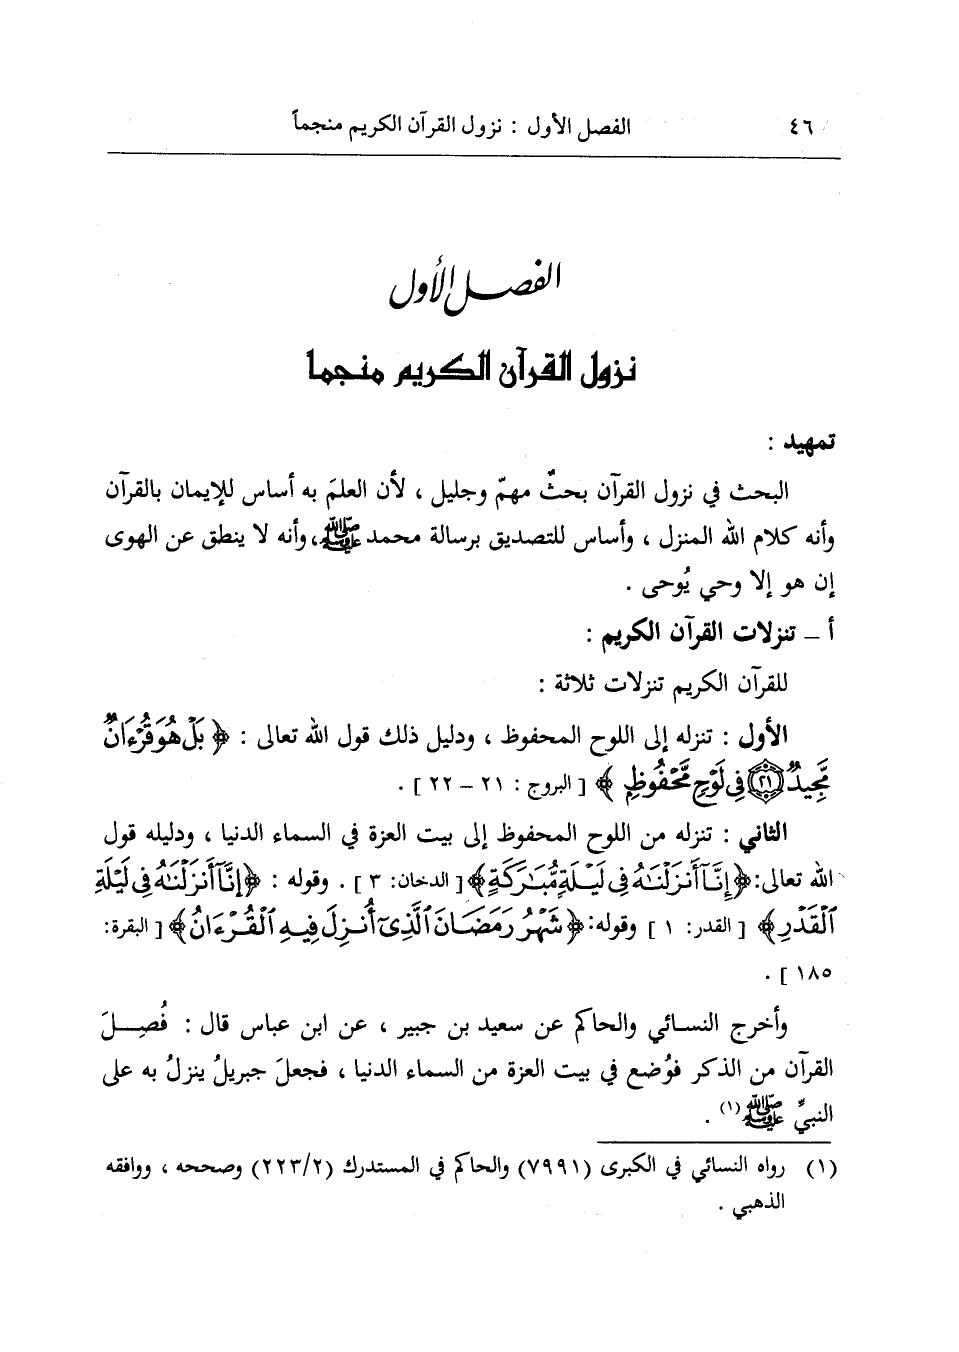 ٤٦ الفصل الأول : نزول القرآن الكريم منجماً
الفصل الأول
نزول القرآن الكريم منجما
تمهيد :
البحث في نزول القرآن بحثٌ مهمّ وجليل ، لأن العلمَ به أساس للإيمان بالقرآن
وأنه كلام الله المنزل ، وأساس للتصديق برسالة محمد ﷺ، وأنه لا ينطق عن الهوى
إن هو إلا وحي يُوحى .
أ – تنزلات القرآن الكريم :
للقرآن الكريم تنزلات ثلاثة :
الأول : تنزله إلى اللوح المحفوظ ، ودليل ذلك قول الله تعالى : ﴿ بَلْ هُوَ قُرْءَانٌ
مَّجِيدٌ ٢١ فِي لَوْحٍ مَّحْفُوظٍ ﴾ [ البروج : ٢١ – ٢٢ ] .
الثاني : تنزله من اللوح المحفوظ إلى بيت العزة في السماء الدنيا ، ودليله قول
الله تعالى: ﴿إِنَّآ أَنزَلْنَٰهُ فِي لَيْلَةٍ مُّبَٰرَكَةٍ﴾ [ الدخان: ٣ ] . وقوله : ﴿إِنَّآ أَنزَلْنَٰهُ فِي لَيْلَةِ
ٱلْقَدْرِ﴾ [ القدر: ١ ] وقوله: ﴿شَهْرُ رَمَضَانَ ٱلَّذِىٓ أُنزِلَ فِيهِ ٱلْقُرْءَانُ﴾ [ البقرة:
١٨٥ ] .
وأخرج النسائي والحاكم عن سعيد بن جبير ، عن ابن عباس قال : فُصِلَ
القرآن من الذكر فوُضع في بيت العزة من السماء الدنيا ، فجعلَ جبريلُ ينزلُ به على
النبيِّ ﷺ(١) .
(١) رواه النسائي في الكبرى (٧٩٩١) والحاكم في المستدرك (٢/٢٢٣) وصححه ، ووافقه
الذهبي .